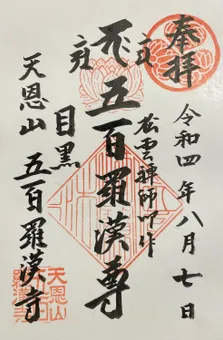 奉拝
令和四年八月七日
松雲禅師作
五百羅漢尊
目黒
天恩山五百羅漢寺
天恩山